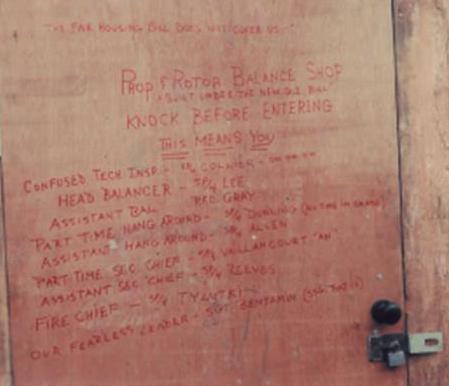 THE FAIR HOUSING BILL DOES NOT COVER US
PROP & ROTOR BALANCE SHOP
BUILT UNDER THE NEW G.I. BILL
KNOCK BEFORE ENTERING
THIS MEANS YOU
CONFUSED TECH INSP -
HEAD BALANCER - LEE
ASSISTANT BAL GRAY
PART TIME HANG AROUND -
ASSISTANT HANG AROUND - ALLEN
PART TIME SEC CHIEF - VAILLANCOURT
ASSISTANT SEC CHIEF - REEVES
FIRE CHIEF -
OUR FEARLESS LEADER - SGT. BENJAMIN